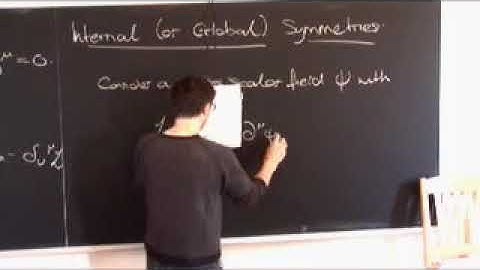 Internal (or Global) Symmetries.
μ = 0.
Consider a scalar field ψ with
∂^μ ψ
- δ_ν^μ ℒ